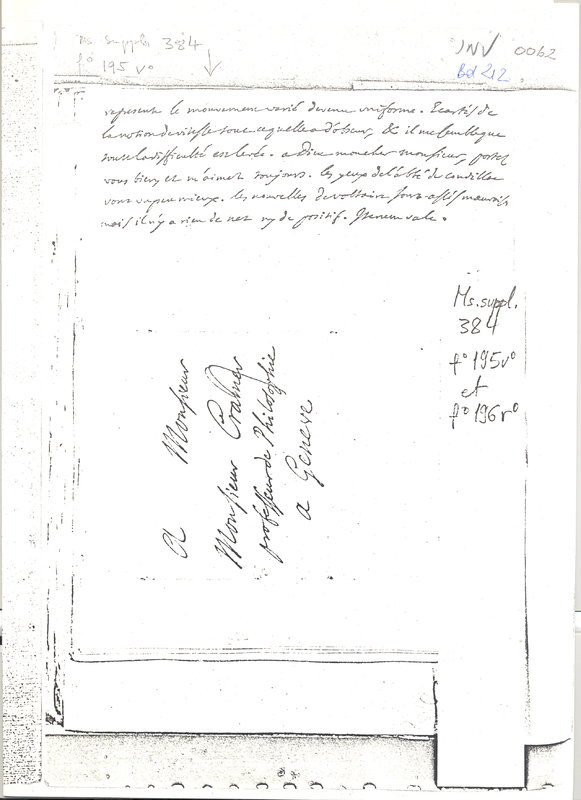 Ms suppl 384
f° 195 v°
INV 0062
Bd 212.
represente le mouvement varié devenu uniforme. Ecartés de
la notion de vitesse tout ce qu'elle a d'obscur, & il me semble que
toute la difficulté est levée. a Dieu mon cher monsieur, portez
vous bien, et m'aimez toujours. les yeux de l'abbé de condillac
vont un peu mieux. les nouvelles de voltaire sont assés mauvaises
mais il n'y a rien de net ny de positif. Iterum vale.
Ms. suppl.
384
f° 195 v°
et
f° 196 r°
A Monsieur
Monsieur Cramer
professeur de Philosophie
a Geneve